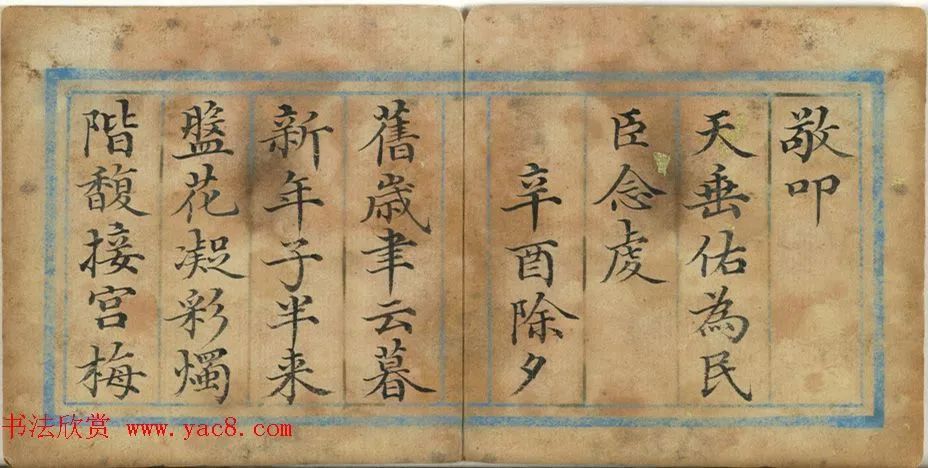 敬叩
天垂佑為民
臣念虔
辛酉除夕
舊歲聿云暮
新年子半来
盤花凝彩燭
階馥接宫梅
书法欣赏 www.yac8.com